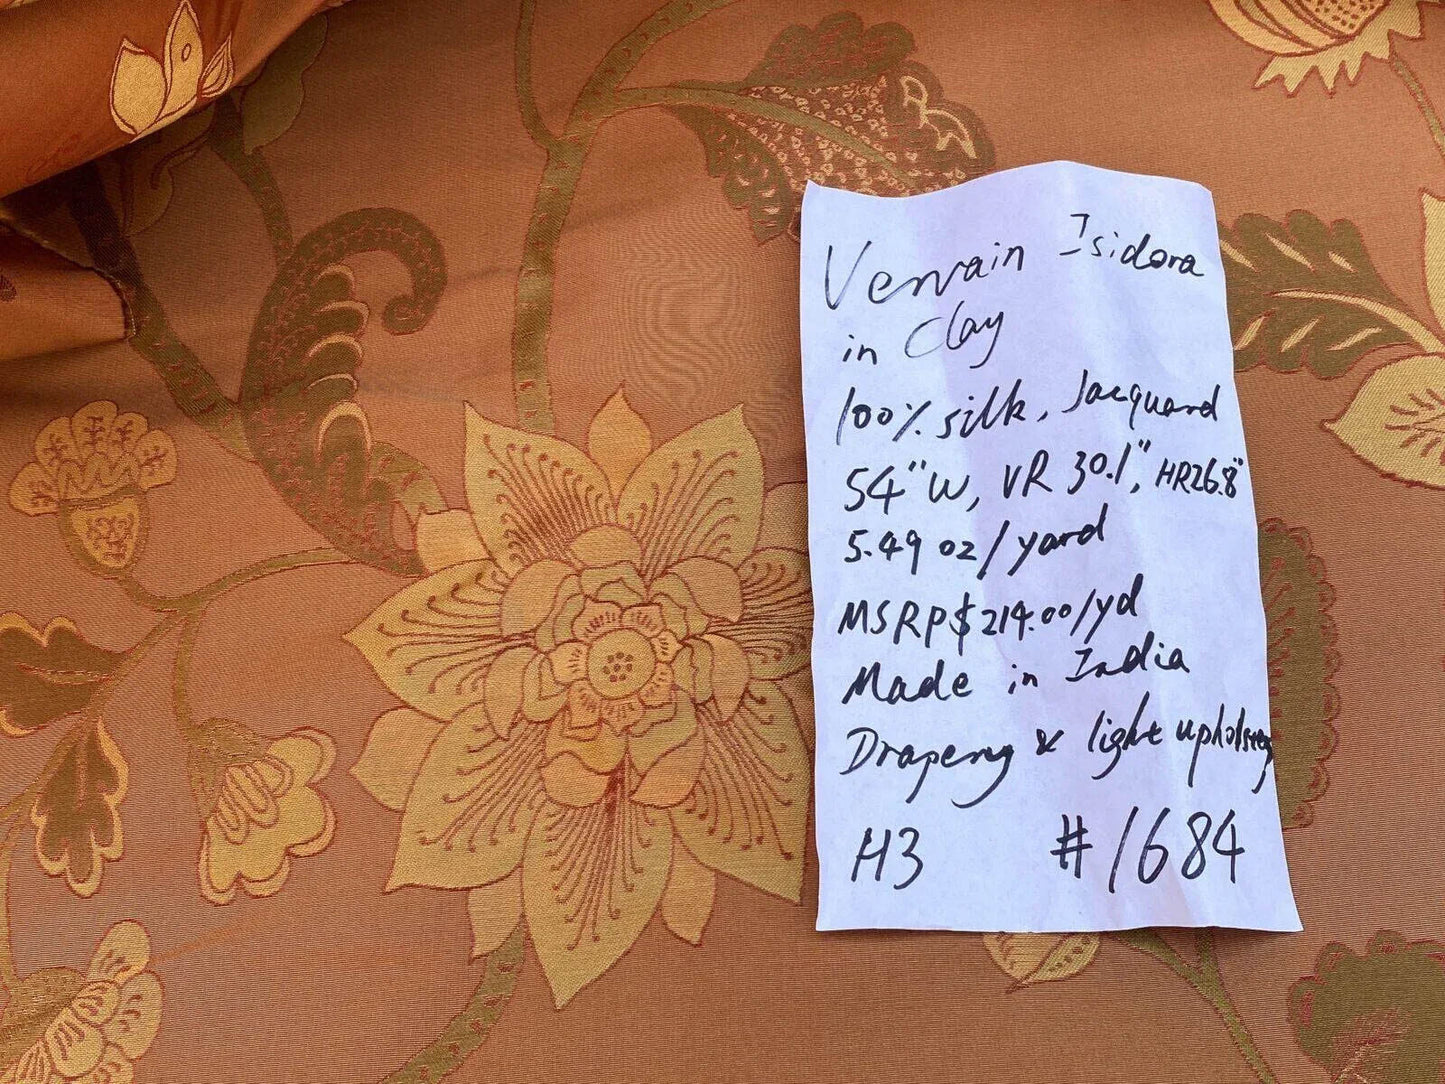 Vervain Isidora
in Clay
100% silk, Jacquard
54"W, VR 30.1", HR26.8"
5.49 oz/yard
MSRP$214.00/yd
Made in India
Drapery & light upholstery
H3 #1684